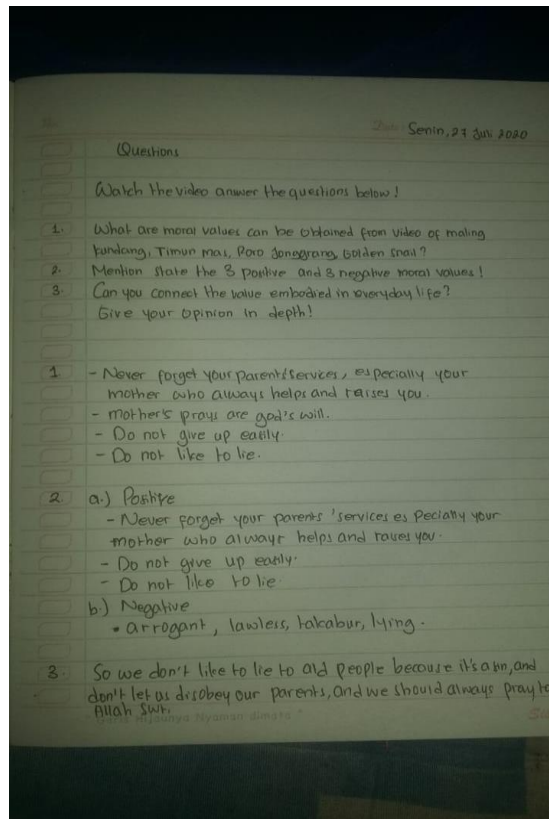 Senin, 27 Juni 2020
Questions
Watch the video answer the questions below !
1. What are moral values can be obtained from video of maling
kundang, Timun mas, Roro Jonggrang, Golden Snail ?
2. Mention state the 3 positive and 3 negative moral values !
3. Can you connect the value embodied in everyday life ?
Give your opinion in depth !
1. - Never forget your parents' services, especially your
mother who always helps and raises you.
- mother's prays are god's will.
- Do not give up easily.
- Do not like to lie.
2. a.) Positive
- Never forget your parents 'services es pecially your
mother who always helps and raises you.
- Do not give up easily.
- Do not like to lie.
b.) Negative
- arrogant, lawless, takabur, lying.
3. So we don't like to lie to old people because it's a sin, and
don't let us disobey our parents, and we should always pray to
Allah Swt.
Hijaunya Nyaman dimata